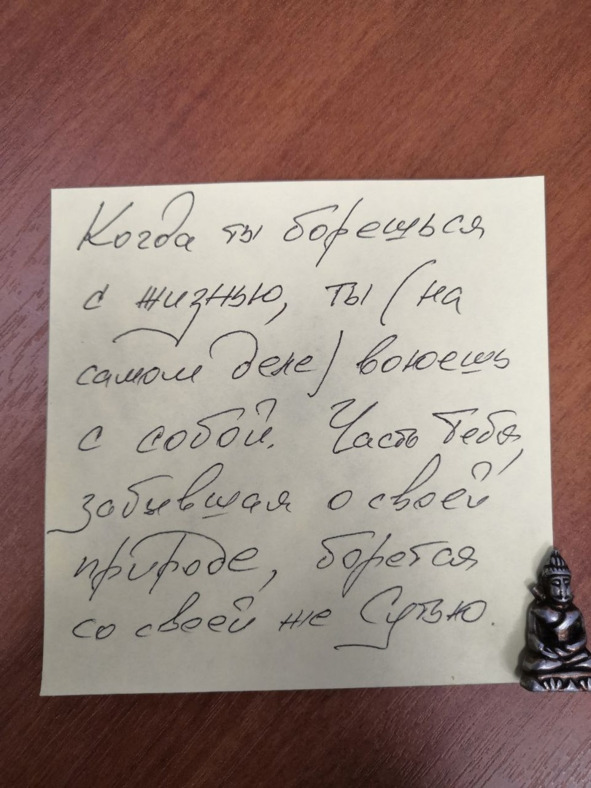 Когда ты борешься
с жизнью, ты (на
самом деле) воюешь
с собой. Часть тебя,
забывшая о своей
природе, борется
со своей же Сутью.